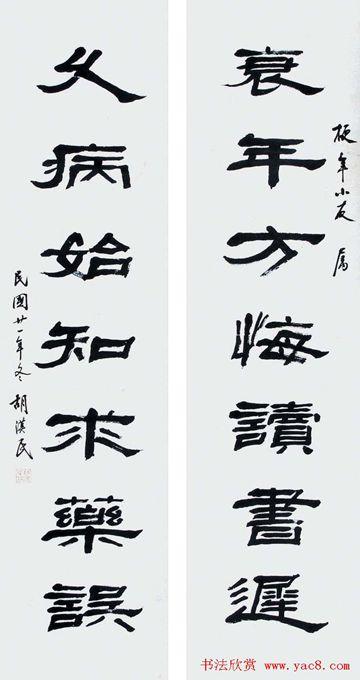 衰年方悔讀書遲
梗年小友 屬
久病始知求藥誤
民國廿一年冬 胡漢民
书法欣赏 www.yac8.com